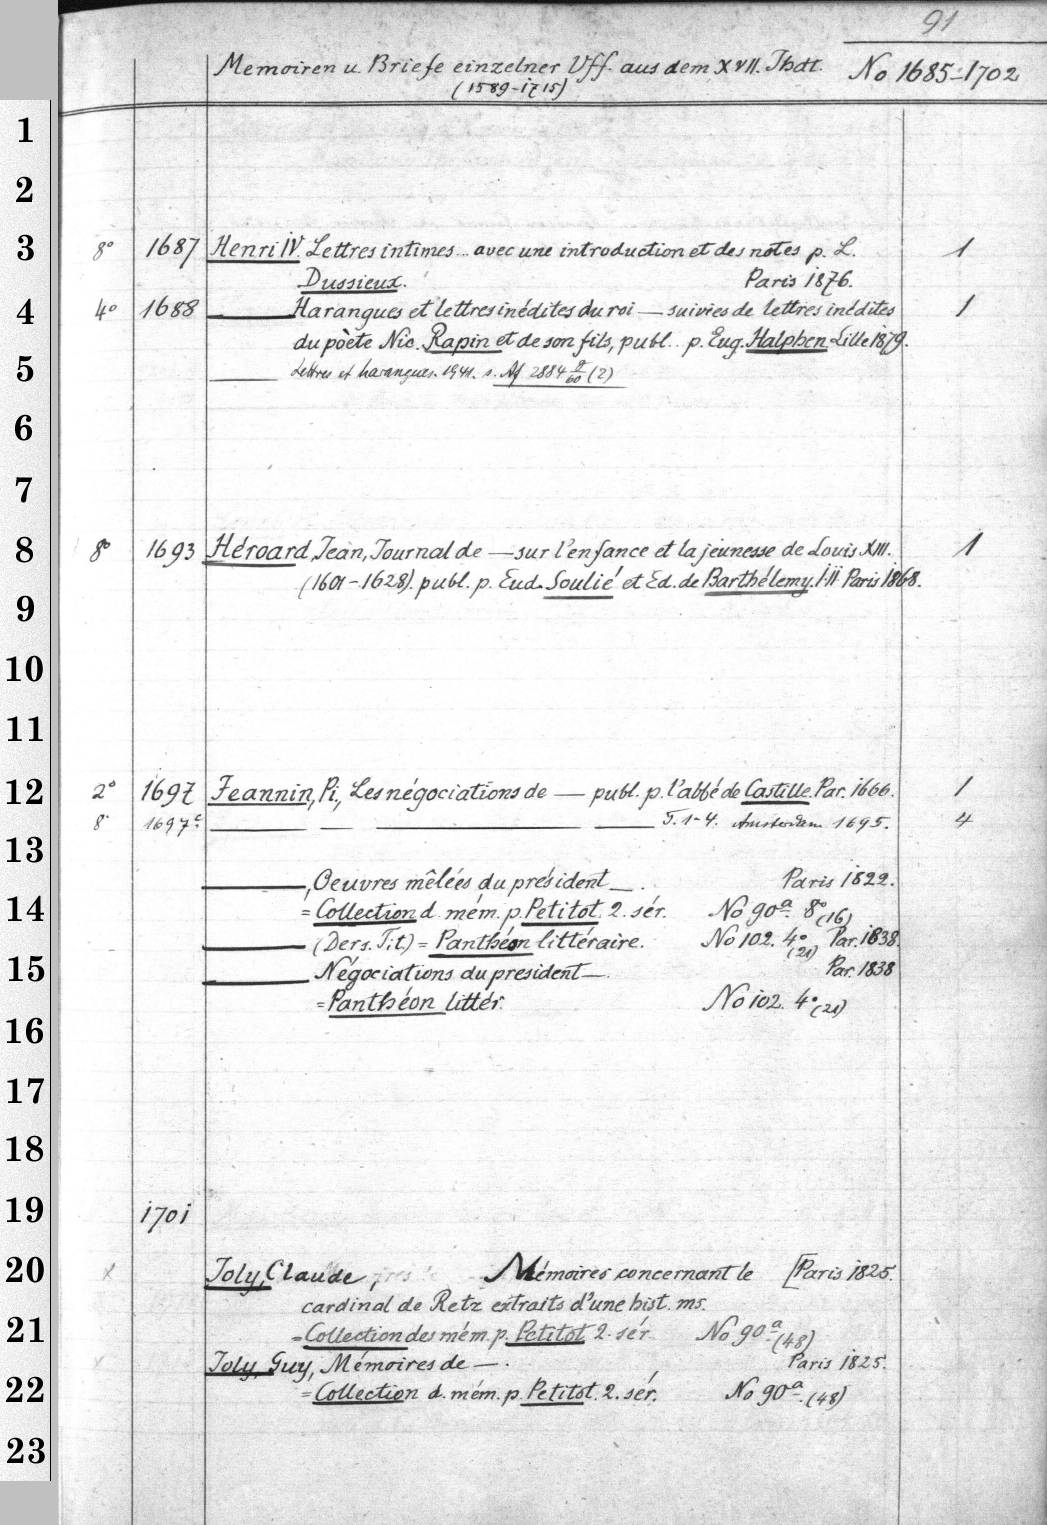 91
Memoiren u. Briefe einzelner Vff. aus dem XVII. Jhdt. No 1685-1702
(1589-1715)
1
2
3 8° 1687 Henri IV. Lettres intimes... avec une introduction et des notes p. L. 1
Dussieux. Paris 1876.
4 4° 1688 — Harangues et lettres inédites du roi — suivies de lettres inédites 1
du poète Nic. Rapin et de son fils, publ. p. Eug. Halphen Lille 1879.
5 — Lettres et harangues. 1941. s. Af 2884 g/60 (2)
6
7
8 8° 1693 Héroard, Jean, Journal de — sur l'enfance et la jeunesse de Louis XIII. 1
(1601-1628). publ. p. Eud. Soulié et Ed. de Barthélemy. I-II Paris 1868.
9
10
11
12 2° 1697 Jeannin, Pi., Les négociations de — publ. p. l'abbé de Castille. Par. 1666. 1
8° 1697c. — — — — T. 1-4. Amsterdam 1695. 4
13
—, Oeuvres mêlées du président — . Paris 1822.
14 = Collection d. mém. p. Petitot. 2. sér. No 90a. 8° (16)
— (Ders. Tit) = Panthéon littéraire. No 102. 4° (21) Par. 1838.
15 — Négociations du president —. Par. 1838
= Panthéon littér. No 102. 4° (21)
16
17
18
19 1701
20 x Joly, Claude, Mémoires concernant le [Paris 1825.
cardinal de Retz extraits d'une hist. ms.
21 = Collection des mém. p. Petitot 2. sér No 90a (48)
x Joly, Guy, Mémoires de — . Paris 1825.
22 = Collection d. mém. p. Petitot. 2. sér. No 90a. (48)
23